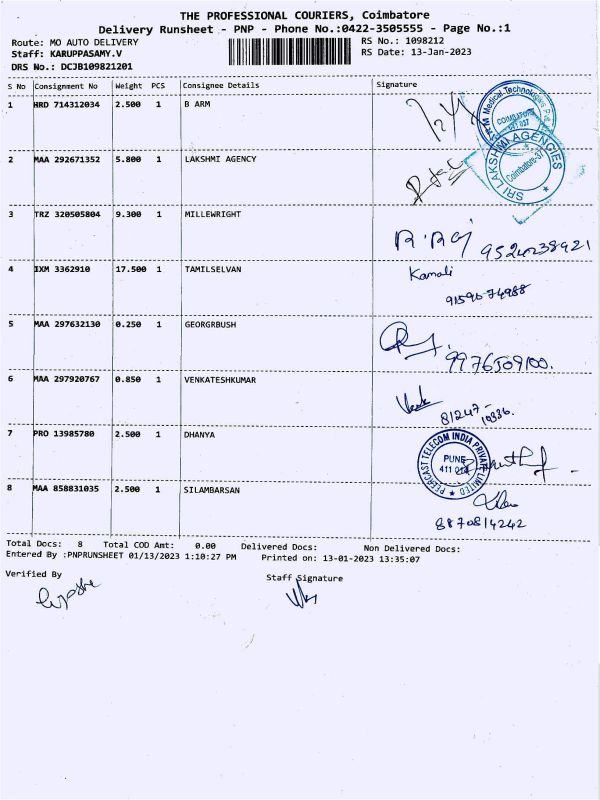 THE PROFESSIONAL COURIERS, Coimbatore
Delivery Runsheet - PNP - Phone No.:0422-3505555 - Page No.:1
Route: MO AUTO DELIVERY RS No.: 1098212
Staff: KARUPPASAMY.V RS Date: 13-Jan-2023
DRS No.: DCJB109821201
S No Consignment No Weight PCS Consignee Details Signature
1 HRD 714312034 2.500 1 B ARM
M Medical Technologies Pvt
COIMBATORE
641 037
2 MAA 292671352 5.800 1 LAKSHMI AGENCY
SRI LAKSHMI AGENCIES
Coimbatore-37
3 TRZ 320505804 9.300 1 MILLEWRIGHT
R.Raj 9524238921
4 IXM 3362910 17.500 1 TAMILSELVAN Kamali
9159674988
5 MAA 297632130 0.250 1 GEORGRBUSH
9976509100.
6 MAA 297920767 0.850 1 VENKATESHKUMAR
81247-
10336.
7 PRO 13985780 2.500 1 DHANYA
PEERCAST TELECOM INDIA PRIVATE LIMITED
PUNE
411 014
8 MAA 858831035 2.500 1 SILAMBARSAN
8870814242
Total Docs: 8 Total COD Amt: 0.00 Delivered Docs: Non Delivered Docs:
Entered By :PNPRUNSHEET 01/13/2023 1:10:27 PM Printed on: 13-01-2023 13:35:07
Verified By Staff Signature